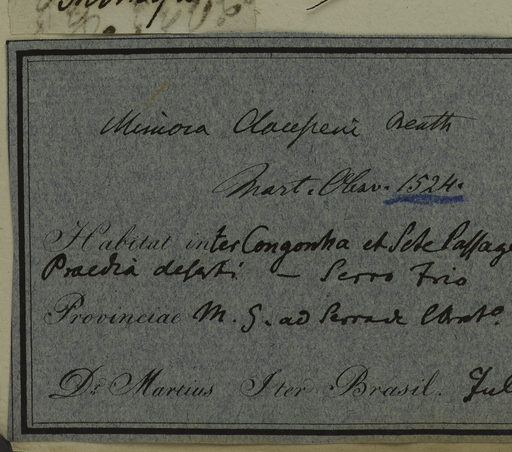 Mimosa Claussenii Benth
Mart. Obsv. 1524.
Habitat inter Congonha et Sete Passage
Praedia deserti — Serro Frio
Provinciae M. G. ad Serra de
Dr. Martius Iter Brasil. Jul